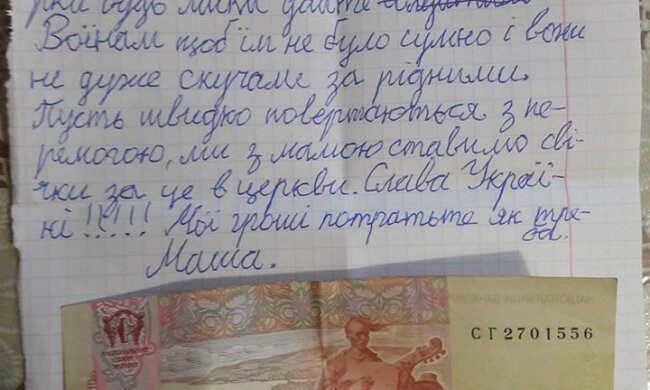 рки будь ласки дайте
Воїнам щоб їм не було сумно і вони
не дуже скучали за рідними.
Пусть швидко повертаються з пе-
ремогою, ми з мамою ставимо сві-
чки за це в церкви. Слава Украї-
ні !!!!!! Мої гроші потратьте як тре-
ба.
Маша.
СГ2701556